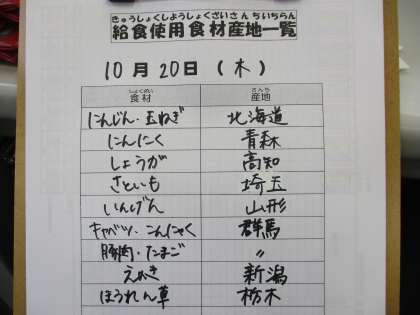 きゅうしょくしようしょくざいさんちいちらん
給食使用食材産地一覧
10月20日（木）
しょくざい さんち
食材 産地
にんじん・玉ねぎ 北海道
にんにく 青森
しょうが 高知
さといも 埼玉
いんげん 山形
キャベツ・こんにゃく 群馬
豚肉・たまご 〃
えのき 新潟
ほうれん草 栃木